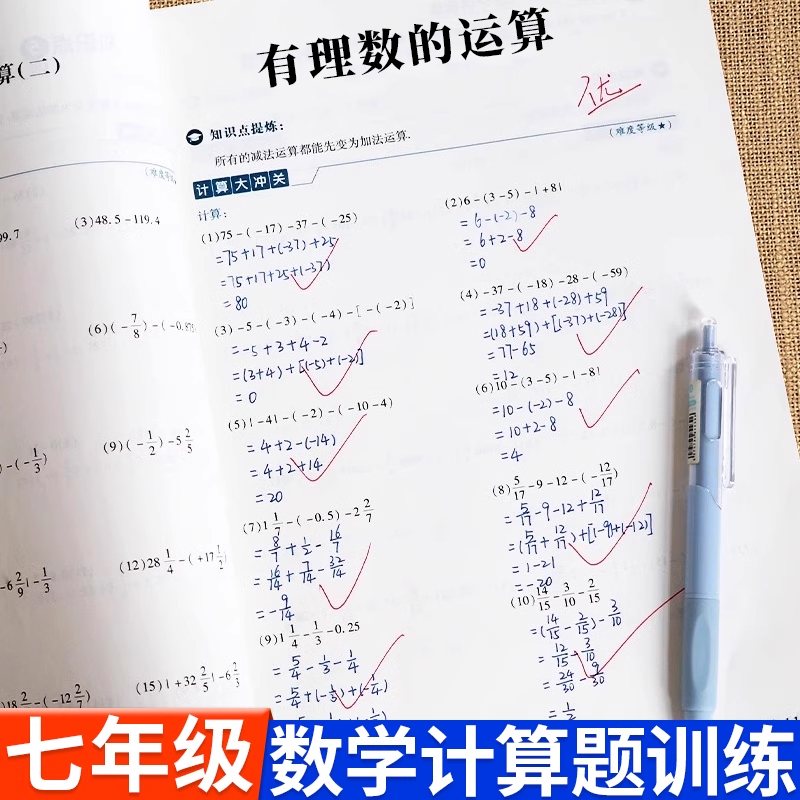 算(二)
(3)48.5-119.4
99.7
(6)(-7/8)-(-0.875
-(-1/3)
(9)(-1/2)-5 2/5
(12)28 1/4-(+17 1/2)
-6 2/9|-1/3
(15)|+32 2/5|-6 2/3
-(-12 2/7)
有理数的运算
优
知识点提炼:
所有的减法运算都能先变为加法运算.
(难度等级★)
计算大冲关
计算:
(1)75-(-17)-37-(-25)
=75+17+(-37)+25
=75+17+25+(-37)
=80
(2)6-(3-5)-|+8|
=6-(-2)-8
=6+2-8
=0
(3)-5-(-3)-(-4)-[-(-2)]
=-5+3+4-2
=(3+4)+[(-5)+(-2)]
=0
(4)-37-(-18)-28-(-59)
=-37+18+(-28)+59
=(18+59)+[(-37)+(-28)]
=77-65
=12
(5)|-4|-(-2)-(-10-4)
=4+2-(-14)
=4+2+14
=20
(6)10-(3-5)-|-8|
=10-(-2)-8
=10+2-8
=4
(7)1 1/7-(-0.5)-2 2/7
=8/7+1/2-16/7
=16/14+7/14-32/14
=-9/14
(8)5/17-9-12-(-12/17)
=5/17-9-12+12/17
=(5/17+12/17)+[(-9)+(-12)]
=1-21
=-20
(9)1 1/4-1/3-0.25
=5/4-1/3-1/4
=5/4+(-1/3)+(-1/4)
(10)14/15-3/10-2/15
=(14/15-2/15)-3/10
=12/15-3/10
=24/30-9/30
=1/2
七年级 数学计算题训练